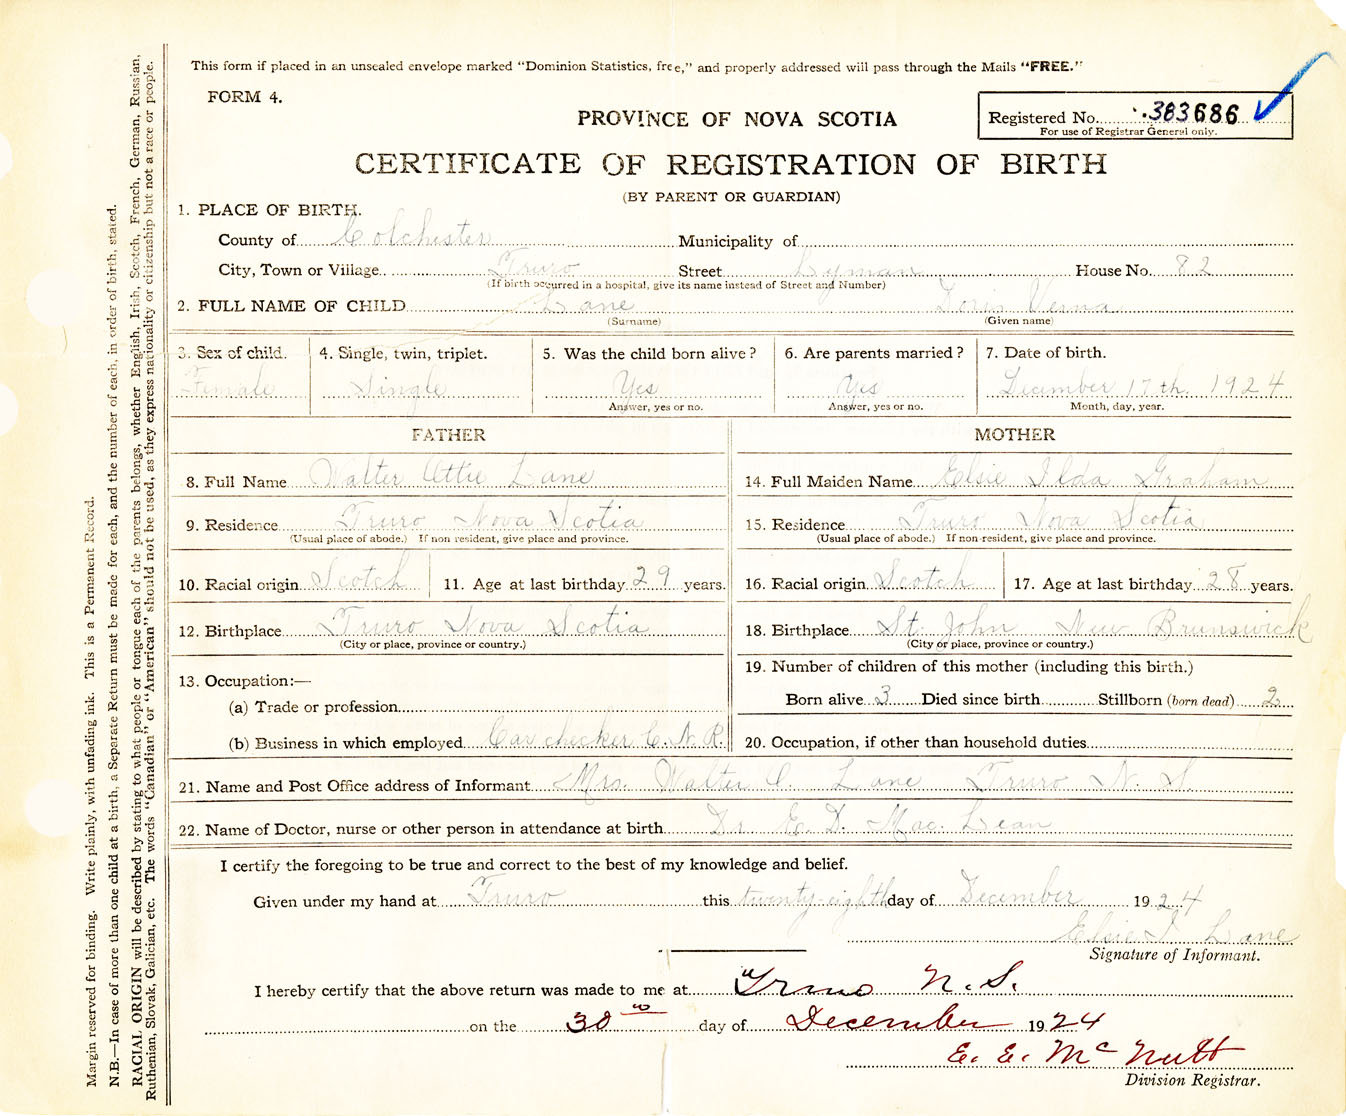 This form if placed in an unsealed envelope marked "Dominion Statistics, free," and properly addressed will pass through the Mails "FREE."
FORM 4.
PROVINCE OF NOVA SCOTIA
Registered No. 383686
For use of Registrar General only.
CERTIFICATE OF REGISTRATION OF BIRTH
(BY PARENT OR GUARDIAN)
1. PLACE OF BIRTH.
County of Colchester Municipality of
City, Town or Village Truro Street Lyman House No. 82
(If birth occurred in a hospital, give its name instead of Street and Number)
2. FULL NAME OF CHILD Lane Doris Verna
(Surname) (Given name)
3. Sex of child. 4. Single, twin, triplet. 5. Was the child born alive? 6. Are parents married? 7. Date of birth.
Female Single Yes Yes December 17th 1924
Answer, yes or no. Answer, yes or no. Month, day, year.
FATHER MOTHER
8. Full Name Walter Attie Lane 14. Full Maiden Name Elsie Ilda Graham
9. Residence Truro Nova Scotia 15. Residence Truro Nova Scotia
(Usual place of abode.) If non resident, give place and province. (Usual place of abode.) If non-resident, give place and province.
10. Racial origin Scotch 11. Age at last birthday 29 years. 16. Racial origin Scotch 17. Age at last birthday 28 years.
12. Birthplace Truro Nova Scotia 18. Birthplace St. John New Brunswick
(City or place, province or country.) (City or place, province or country.)
13. Occupation:— 19. Number of children of this mother (including this birth.)
(a) Trade or profession Born alive 3 Died since birth Stillborn (born dead) 2
(b) Business in which employed Car checker C.N.R. 20. Occupation, if other than household duties
21. Name and Post Office address of Informant Mrs. Walter A. Lane Truro N.S.
22. Name of Doctor, nurse or other person in attendance at birth Dr E. D. Mac Lean
I certify the foregoing to be true and correct to the best of my knowledge and belief.
Given under my hand at Truro this twenty-eighth day of December 1924
Elsie I Lane
Signature of Informant.
I hereby certify that the above return was made to me at Truro N.S.
on the 30th day of December 1924
E. E. McNutt
Division Registrar.
Margin reserved for binding. Write plainly, with unfading ink. This is a Permanent Record.
N.B.—In case of more than one child at a birth, a Separate Return must be made for each, and the number of each, in order of birth, stated.
RACIAL ORIGIN will be described by stating to what people or tongue each of the parents belongs, whether English, Irish, Scotch, French, German, Russian,
Ruthenian, Slovak, Galician, etc. The words "Canadian" or "American" should not be used, as they express nationality or citizenship but not a race or people.